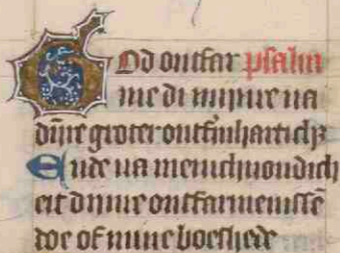 God ontfar psalm
me di mijnre na
dijnre groter ontfinhartich3
Ende na menichuondich
eit dijnre ontfarmenissē
doe of mine boeshede